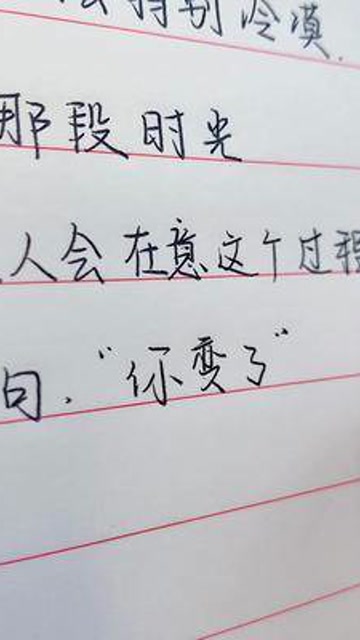 特别冷漠.
那段时光
人会在意这个过程
句."你变了"